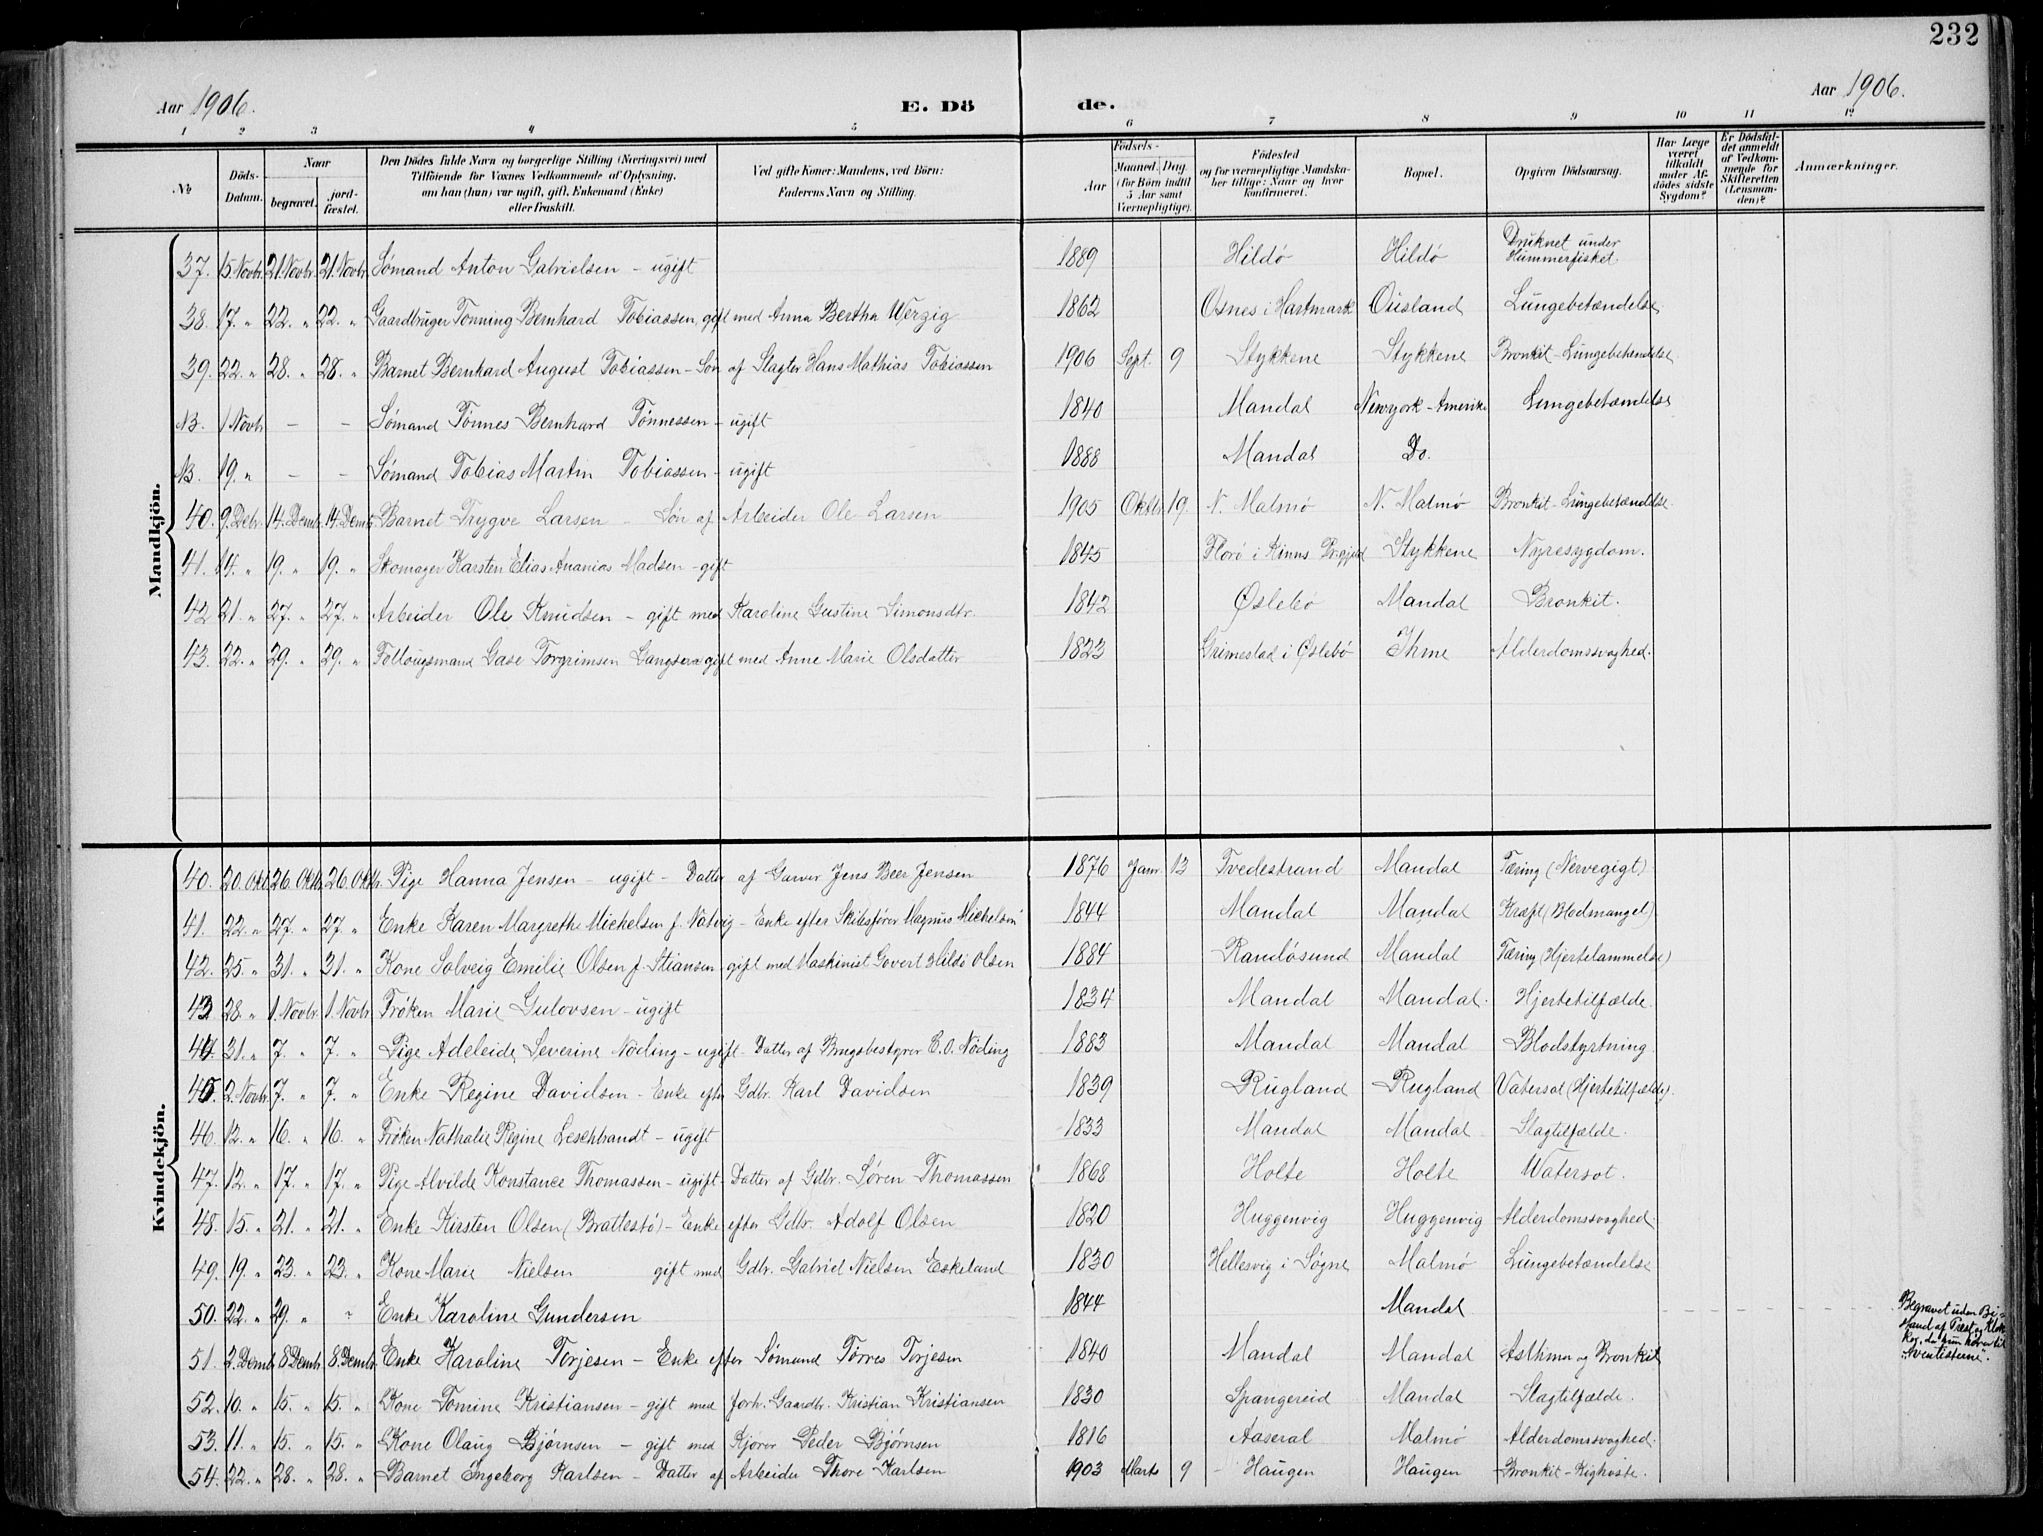 232
Aar 1906. E. Dö de. Aar 1906.
1 2 3 4 5 6 7 8 9 10 11 12
No
Döds-Datum.
Naar
begravet.
jord-fæstet.
Den Dödes fulde Navn og borgerlige Stilling (Næringsvei) med
Tilföiende for Voxnes Vedkommende af Oplysning,
om han (hun) var ugift, gift, Enkemand (Enke)
eller fraskilt.
Ved gifte Koner: Mandens, ved Börn:
Faderens Navn og Stilling.
Födsels-
Aar
Maaned. Dag.
(for Börn indtil
5 Aar samt
Værnepligtige).
Födested
og for værnepligtige Mandska-
ber tillige: Naar og hvor
konfirmeret.
Bopæl.
Opgiven Dödsaarsag.
Har Læge
været
tilkaldt
under Af-
dödes sidste
Sygdom?
Er Dödsfal-
det anmeldt
af Vedkom-
mende for
Skifteretten
(Lensman-
den)?
Anmærkninger.
Mandkjön.
37. 15 Novbr. 21. Novbr. 21. Novbr. Sømand Anton Gabrielsen – ugift 1889 Hildø Hildø Druknet under Hummerfisket.
38. 17. " 22. " 22. " Gaardbruger Tønning Bernhard Tobiassen, gift med Anna Bertha Werzig 1862 Osnes i Hartmark Ousland Lungebetændelse.
39. 22. " 28. " 28. " Barnet Bernhard August Tobiassen – Søn af Slagter Hans Mathias Tobiassen 1906 Sept. 9 Stykkene Stykkene Bronkit - Lungebetændelse.
NB. 1 Novb. – – Sømand Tønnes Bernhard Tønnessen – ugift 1840 Mandal Newyork - Amerika Lungebetændelse
NB. 19. " – – Sømand Tobias Martin Tobiassen – ugift 1888 Mandal Do.
40. 9. Debr. 14. Dembr. 14. Dembr. Barnet Trygve Larsen – Søn af Arbeider Ole Larsen 1905 Oktbr. 19 N. Malmø N. Malmø Bronkit - Lungebetændelse.
41. 14. " 19. " 19. " Skomager Karsten Elias Ananias Madsen – gift 1845 Florø i Kinns Prgjeld Stykkene Nyresygdom.
42 21. " 27. " 27. " Arbeider Ole Knudsen – gift med Karoline Gustine Simonsdtr. 1842 Øslebø Mandal Bronkit.
43. 22. " 29. " 29. " Føllougsmand Gase Torgrimsen gift med Anne Marie Olsdatter 1823 Grimestad i Øslebø Ihme Alderdomssvaghed.
Kvindekjön.
40. 20. Oktb. 26. Oktb. 26. Oktbr. Pige Hanna Jensen – ugift – Datter af Garver Jens Beer Jensen 1876 Janr. 13 Tvedestrand Mandal Tæring (Nervegigt)
41. 22. " 27. " 27 " Enke Karen Margrethe Michelsen f. Natvig – Enke efter Skibsfører Magnus Michelsen 1844 Mandal Mandal Kræft (Blodmangel)
42. 25. " 31. " 31. " Kone Solveig Emilie Olsen f. Stiansen gift med Maskinist Govert Hildø Olsen 1884 Randøsund Mandal Tæring (Hjertelammelse)
43 28. " 1. Novbr. 1. Novbr. Frøken Marie Gulovsen – ugift 1834 Mandal Mandal. Hjertetilfælde.
44. 31. " 7. " 7. " Pige Adeleide Severine Nøding – ugift – Datter af Brugsbestyrer C. O. Nøding 1883 Mandal Mandal Blodstyrtning.
45. 2. Novbr. 7. " 7. " Enke Regine Davidsen – Enke efter Gdbr. Karl Davidsen 1839 Rugland Rugland Vatersot (Hjertetilfælde).
46. 12. " 16. " 16. " Frøken Nathalie Regine Leschbrandt – ugift 1833 Mandal Mandal Slagtilfælde.
47. 12. " 17. " 17. " Pige Alvilde Konstance Thomassen – ugift – Datter af Gdbr. Søren Thomassen 1868 Holte Holte Watersot.
48. 15. " 21. " 21. " Enke Kirsten Olsen (Brattestø) – Enke efter Gdbr. Adolf Olsen 1820 Huggenvig Huggenvig Alderdomssvaghed.
49. 19. " 23. " 23. " Kone Marie Nielsen gift med Gdbr. Gabriel Nielsen Eskeland 1830 Hellesvig i Søgne Malmø Lungebetændelse
50. 22. " 29. " " Enke Karoline Gundersen 1844 Mandal. Begravet uden Bi-
stand af Prest og Klok-
ker, da hun hører til
"Aventisterne".
51. 2. Dembr. 8 Dembr. 8. Dembr. Enke Karoline Torjesen – Enke efter Sømand Tørres Torjesen 1840 Mandal Mandal Asthma og Bronkit
52. 10. " 15. " 15. " Kone Tomine Kristiansen – gift med forh. Gaardbr. Kristian Kristiansen 1830 Spangereid Mandal Slagtilfælde.
53. 11. " 15. " 15. " Kone Olaug Bjørnsen – gift med Kjører Peder Bjørnsen 1816 Aaseral Malmø Alderdomssvaghed.
54. 22. " 28. " 28. " Barnet Ingeborg Karlsen – Datter af Arbeider Thore Karlsen 1903 Marts 9 Haugen Haugen Bronkit - Kighoste.